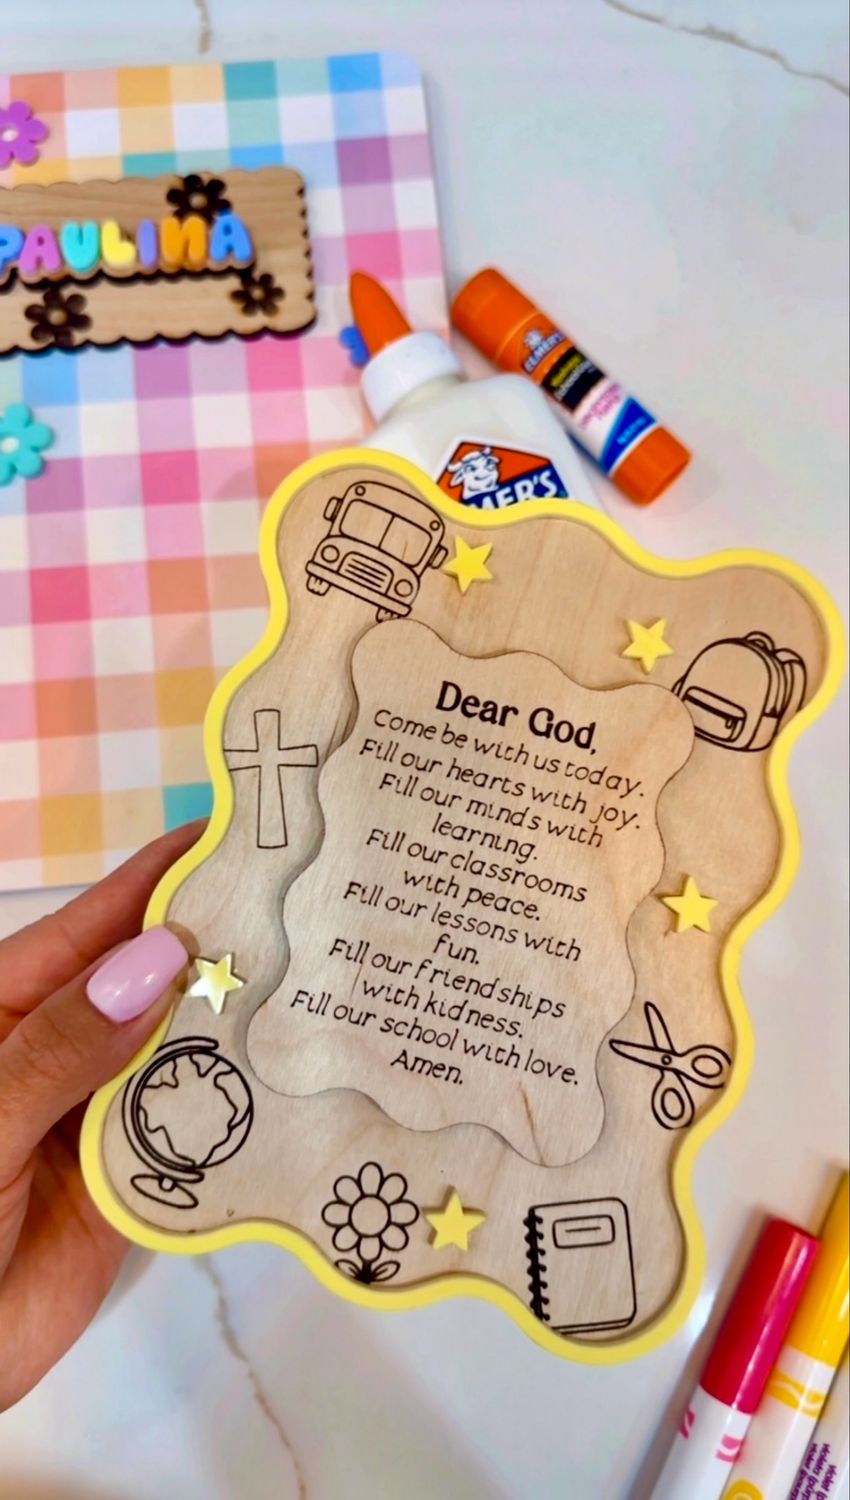 PAULINA
ELMER'S
ELMER'S
Dear God,
Come be with us today.
Fill our hearts with joy.
Fill our minds with
learning.
Fill our classrooms
with peace.
Fill our lessons with
fun.
Fill our friendships
with kidness.
Fill our school with love.
Amen.